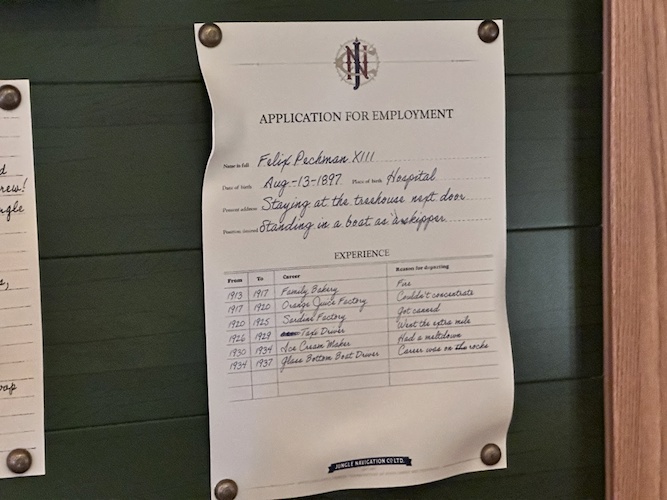 d
rew!
ngle
s,
oop
JN
APPLICATION FOR EMPLOYMENT
Name in full Felix Pechman XIII
Date of Birth Aug-13-1897 Place of Birth Hospital
Present address Staying at the treehouse next door
Position desired Standing in a boat as a skipper
EXPERIENCE
From To Career Reason for departing
1913 1917 Family Bakery Fire
1917 1920 Orange Juice Factory Couldn't concentrate
1920 1925 Sardine Factory Got canned
1926 1929 Taxi Driver Went the extra mile
1930 1934 Ice Cream Maker Had a meltdown
1934 1937 Glass Bottom Boat Driver Career was on the rocks
JUNGLE NAVIGATION CO LTD.